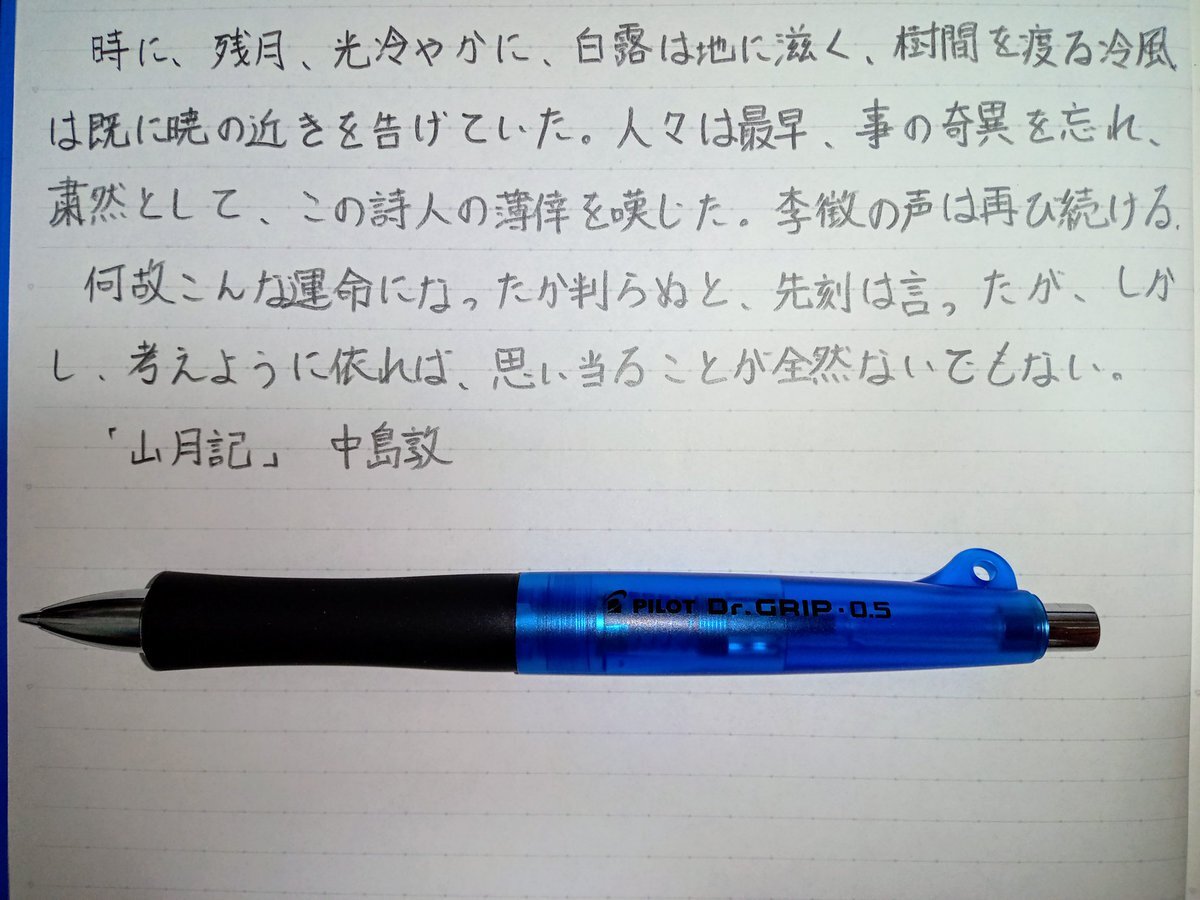 時に、残月、光冷やかに、白露は地に滋く、樹間を渡る冷風
は既に暁の近きを告げていた。人々は最早、事の奇異を忘れ、
粛然として、この詩人の薄倖を嘆じた。李徴の声は再び続ける。
何故こんな運命になったか判らぬと、先刻は言ったが、しか
し、考えように依れば、思い当ることが全然ないでもない。
「山月記」 中島敦
PILOT Dr.GRIP・0.5